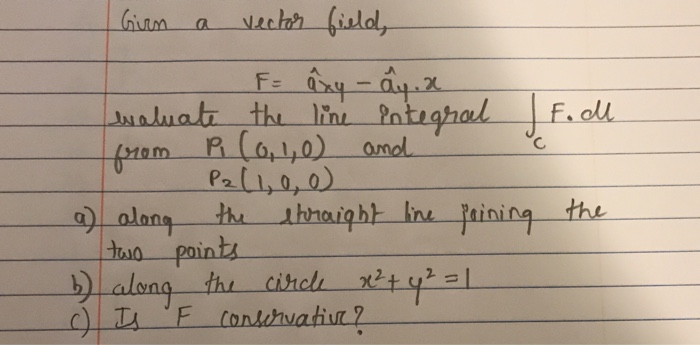 Given a vector field,
F = âxy - ây.x
evaluate the line integral ∫ F.dl
C
from P1 (0,1,0) and
P2 (1,0,0)
a) along the straight line joining the
two points
b) along the circle x² + y² = 1
c) Is F conservative?